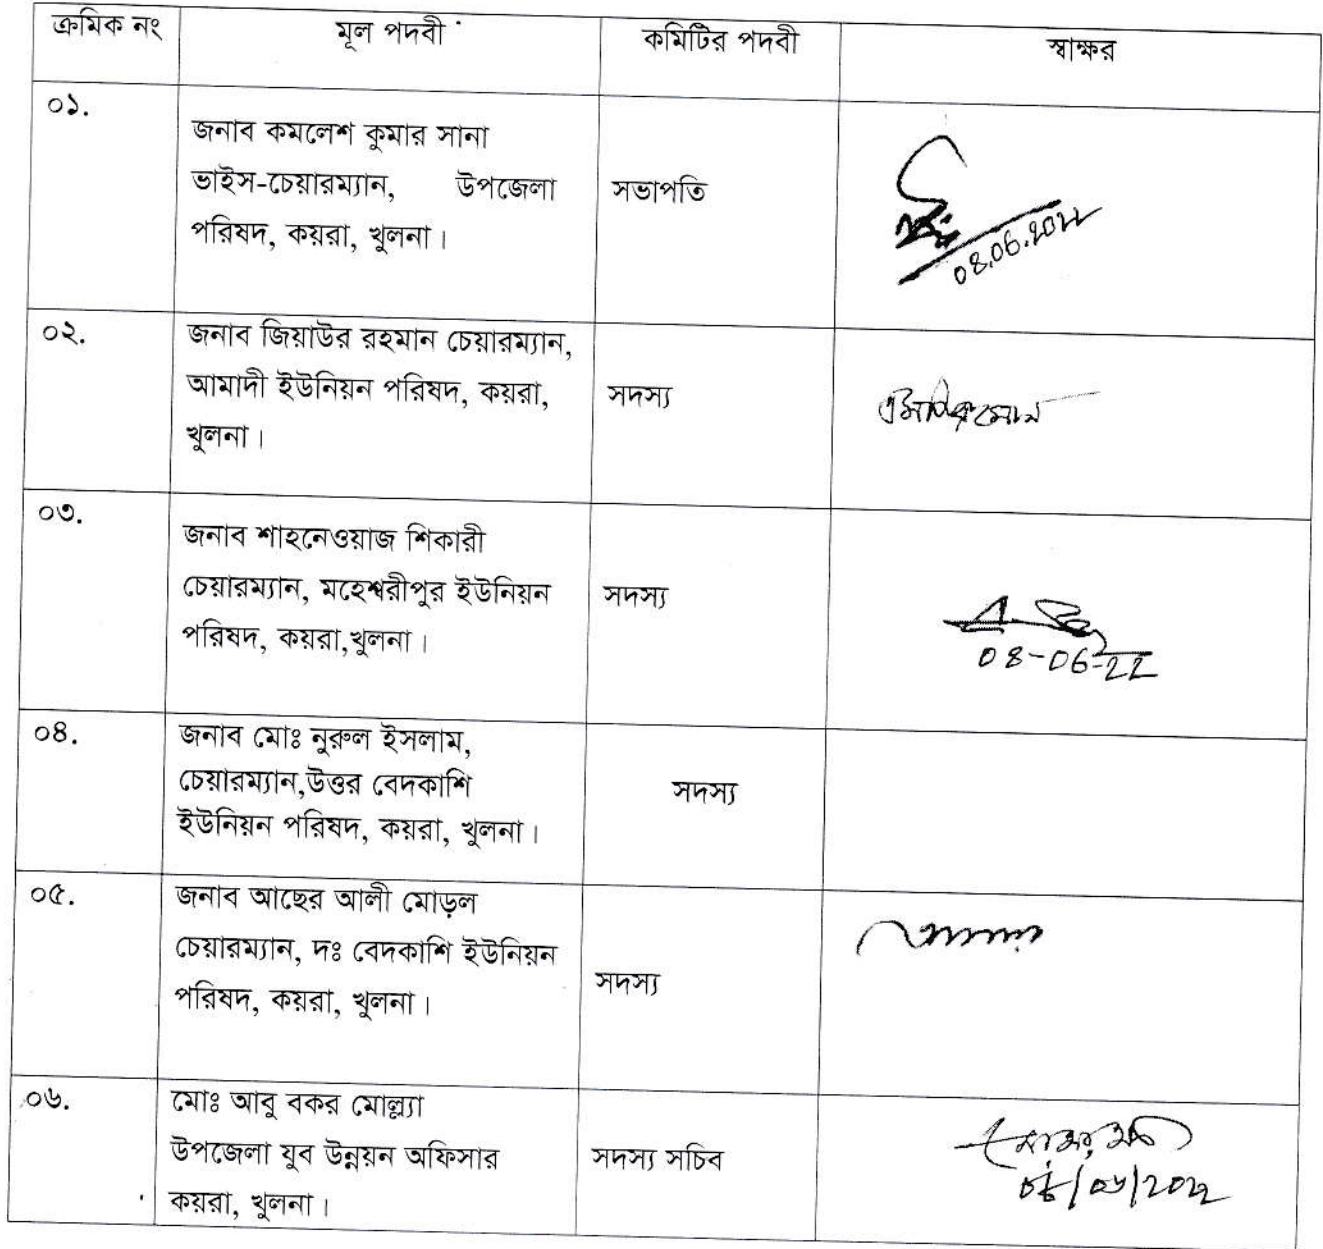 ক্রমিক নং মূল পদবী কমিটির পদবী স্বাক্ষর
০১.
জনাব কমলেশ কুমার সানা
ভাইস-চেয়ারম্যান, উপজেলা
পরিষদ, কয়রা, খুলনা।
সভাপতি
08.06.2022
০২.
জনাব জিয়াউর রহমান চেয়ারম্যান,
আমাদী ইউনিয়ন পরিষদ, কয়রা,
খুলনা।
সদস্য
০৩.
জনাব শাহনেওয়াজ শিকারী
চেয়ারম্যান, মহেশ্বরীপুর ইউনিয়ন
পরিষদ, কয়রা,খুলনা।
সদস্য
08-06-22
০৪.
জনাব মোঃ নুরুল ইসলাম,
চেয়ারম্যান,উত্তর বেদকাশি
ইউনিয়ন পরিষদ, কয়রা, খুলনা।
সদস্য
০৫.
জনাব আছের আলী মোড়ল
চেয়ারম্যান, দঃ বেদকাশি ইউনিয়ন
পরিষদ, কয়রা, খুলনা।
সদস্য
০৬.
মোঃ আবু বকর মোল্ল্যা
উপজেলা যুব উন্নয়ন অফিসার
কয়রা, খুলনা।
সদস্য সচিব